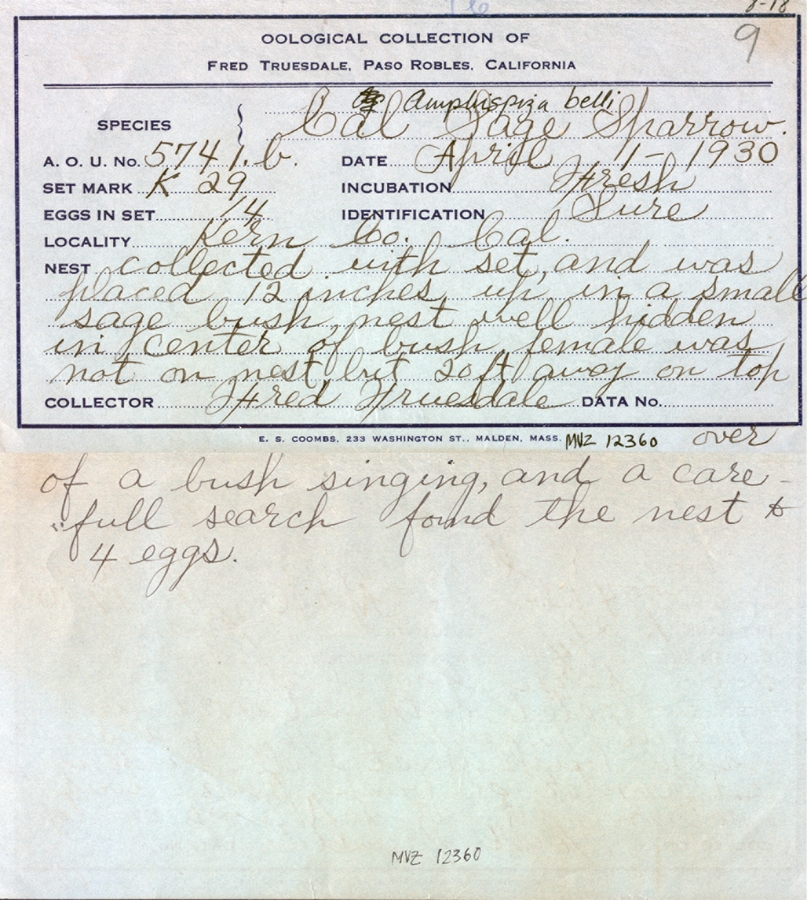 8-18
9
OOLOGICAL COLLECTION OF
FRED TRUESDALE, PASO ROBLES, CALIFORNIA
Amphispiza belli
SPECIES Cal Sage Sparrow.
A. O. U. No. 574.1.b. DATE April 1-1930
SET MARK K 29 INCUBATION Fresh
EGGS IN SET 1/4 IDENTIFICATION Sure
LOCALITY Kern Co. Cal.
NEST collected with set, and was
placed 12 inches up in a small
sage bush, nest well hidden
in center of bush, female was
not on nest but 20 ft away on top
COLLECTOR Fred Truesdale DATA No.
E. S. COOMBS, 233 WASHINGTON ST., MALDEN, MASS. MVZ 12360 over
of a bush singing, and a care-
full search found the nest &
4 eggs.
MVZ 12360